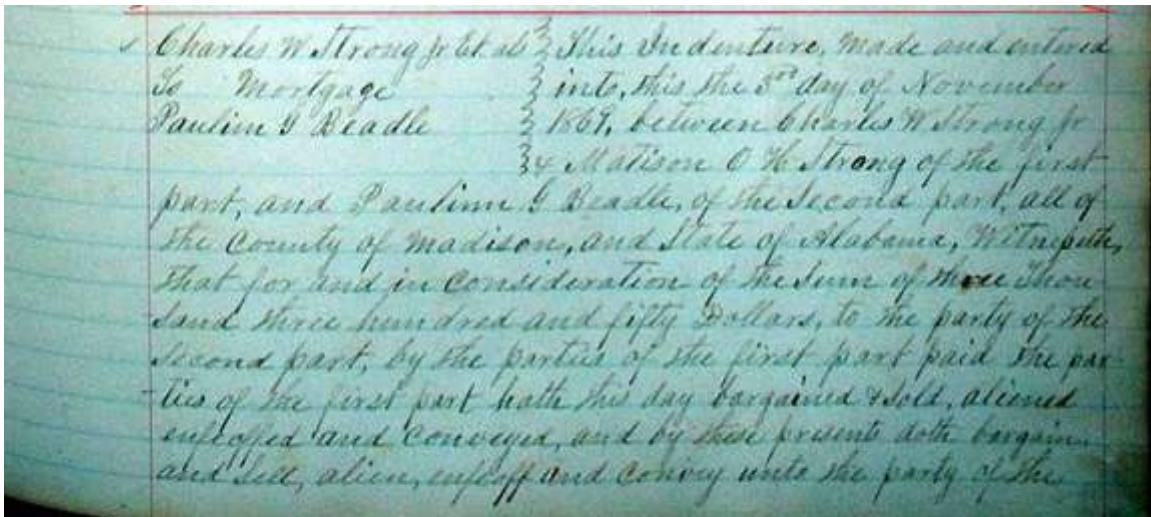 Charles W Strong Jr Et als } This Indenture, made and entered
To Mortgage } into, this the 3rd day of November
Paulinn G Beadle } 1869, between Charles W Strong Jr
} & Matison O H Strong of the first
part, and Paulinn G Beadle, of the Second part, all of
the County of Madison, and State of Alabama, Witnesseth,
that for and in Consideration of the Sum of three Thou
sand three hundred and fifty Dollars, to the party of the
Second part, by the parties of the first part paid the par
ties of the first part hath this day bargained & sold, aliened
enfeoffed and conveyed, and by these presents doth bargain
and sell, alien, enfeoff and convey unto the party of the